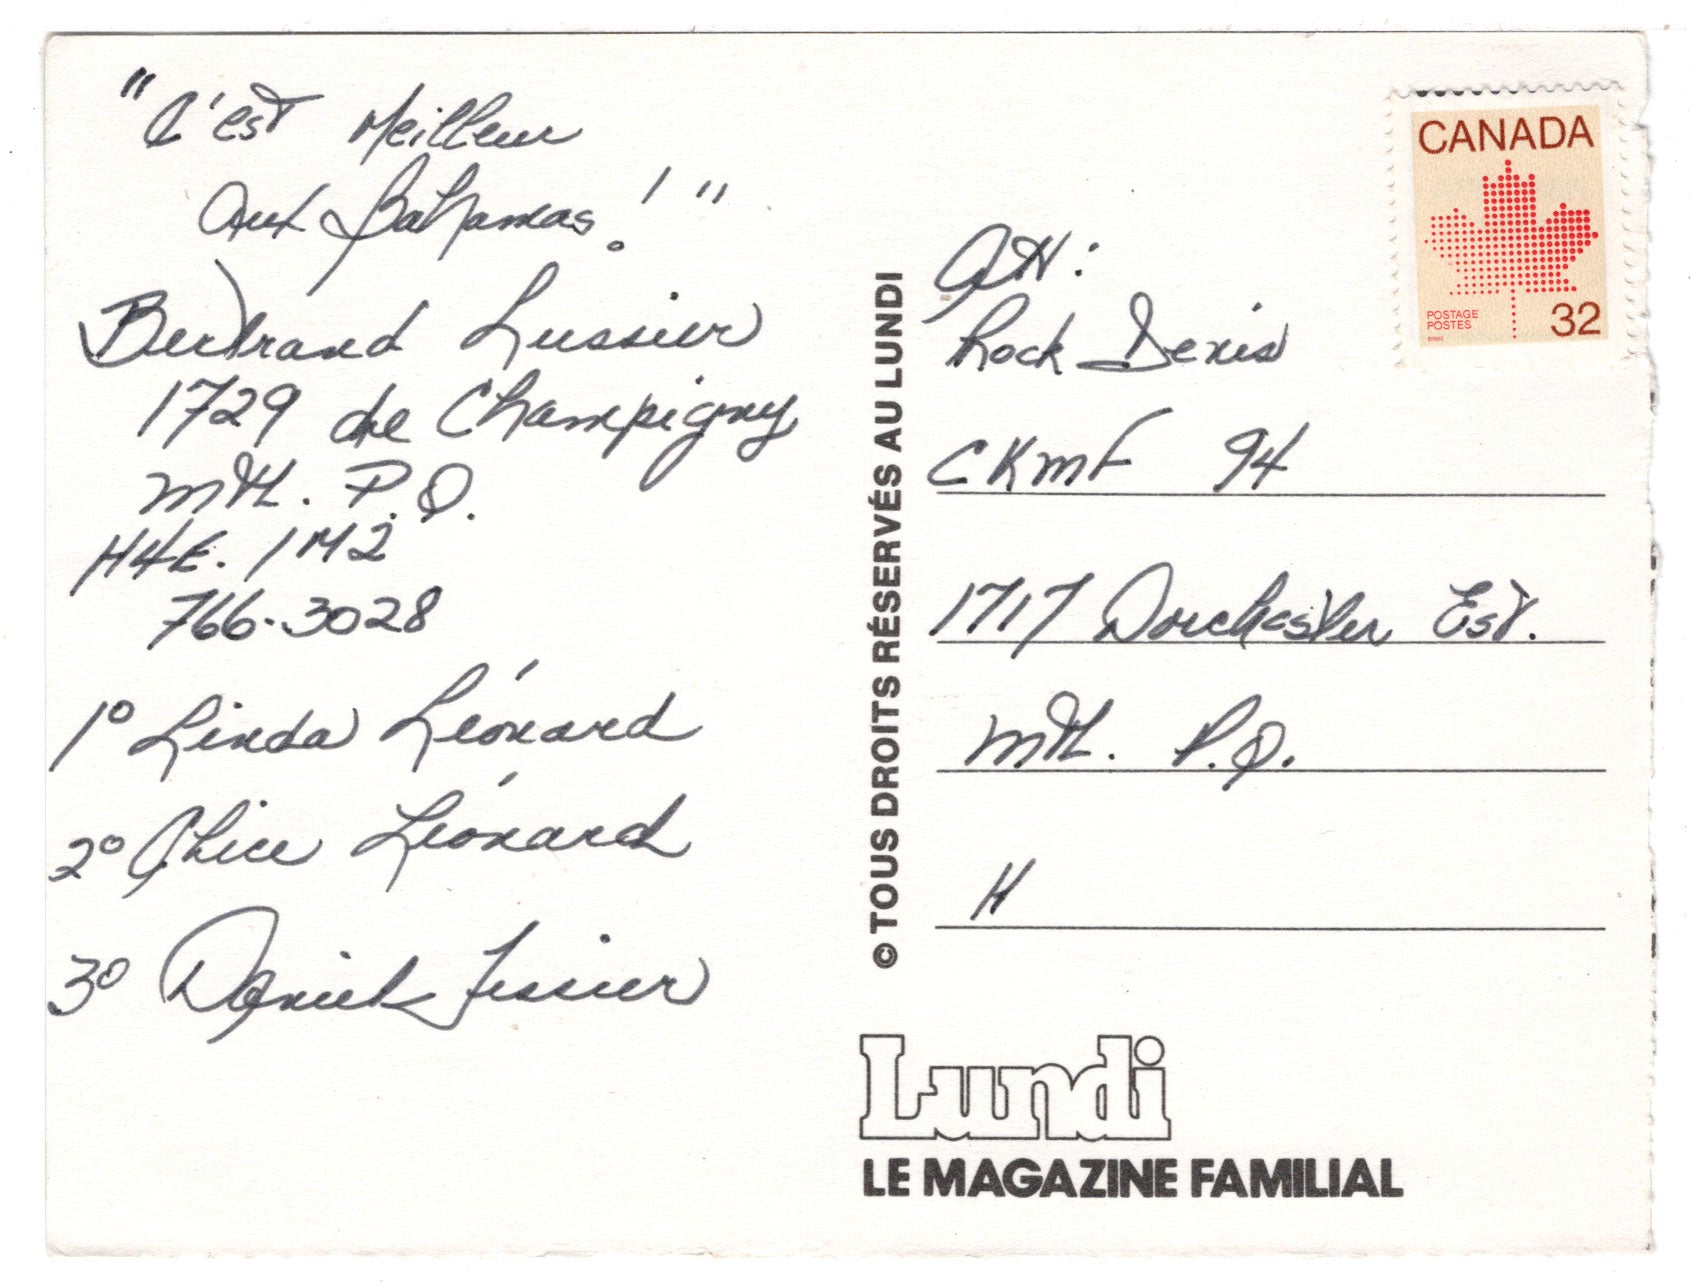 "C'est Meilleur
Aux Bahamas!"
Bertrand Lussier
1729 de Champigny
Mtl. P.Q.
H4E. 1M2
766-3028
1° Linda Léonard
2° Alice Léonard
3° Daniel Tessier
© TOUS DROITS RÉSERVÉS AU LUNDI
CANADA
POSTAGE
POSTES
32
Att:
Rock Denis
CKMF 94
1717 Dorchester Est.
Mtl. P.Q.
H
Lundi
LE MAGAZINE FAMILIAL